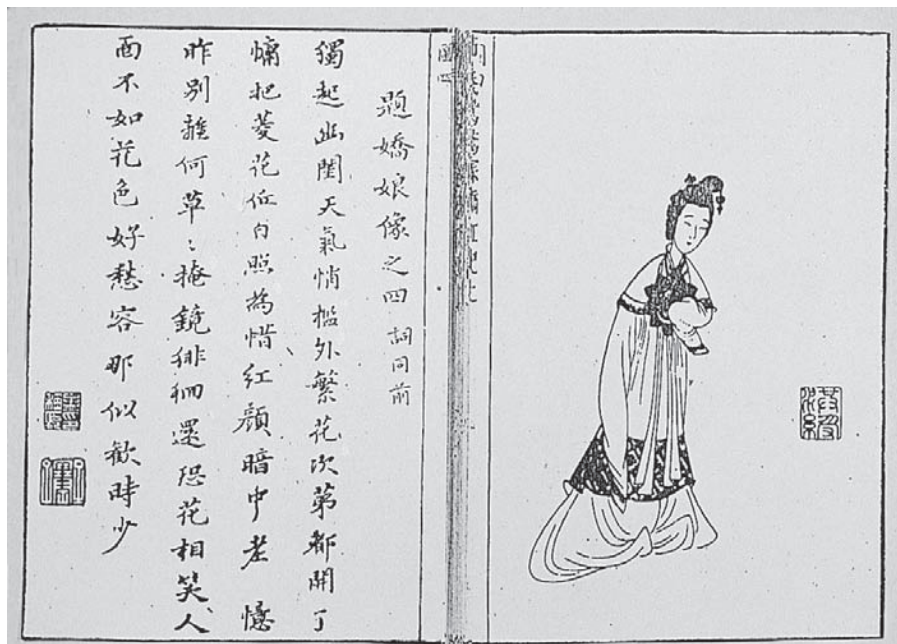 題嬌娘像之四 詞同前
獨起幽閨天氣悄檻外繁花次第都開了
慵把菱花仔自照為惜紅顏暗中老 憶
昨別離何草〻掩鏡徘徊還恐花相笑人
面不如花色好愁容那似歡時少